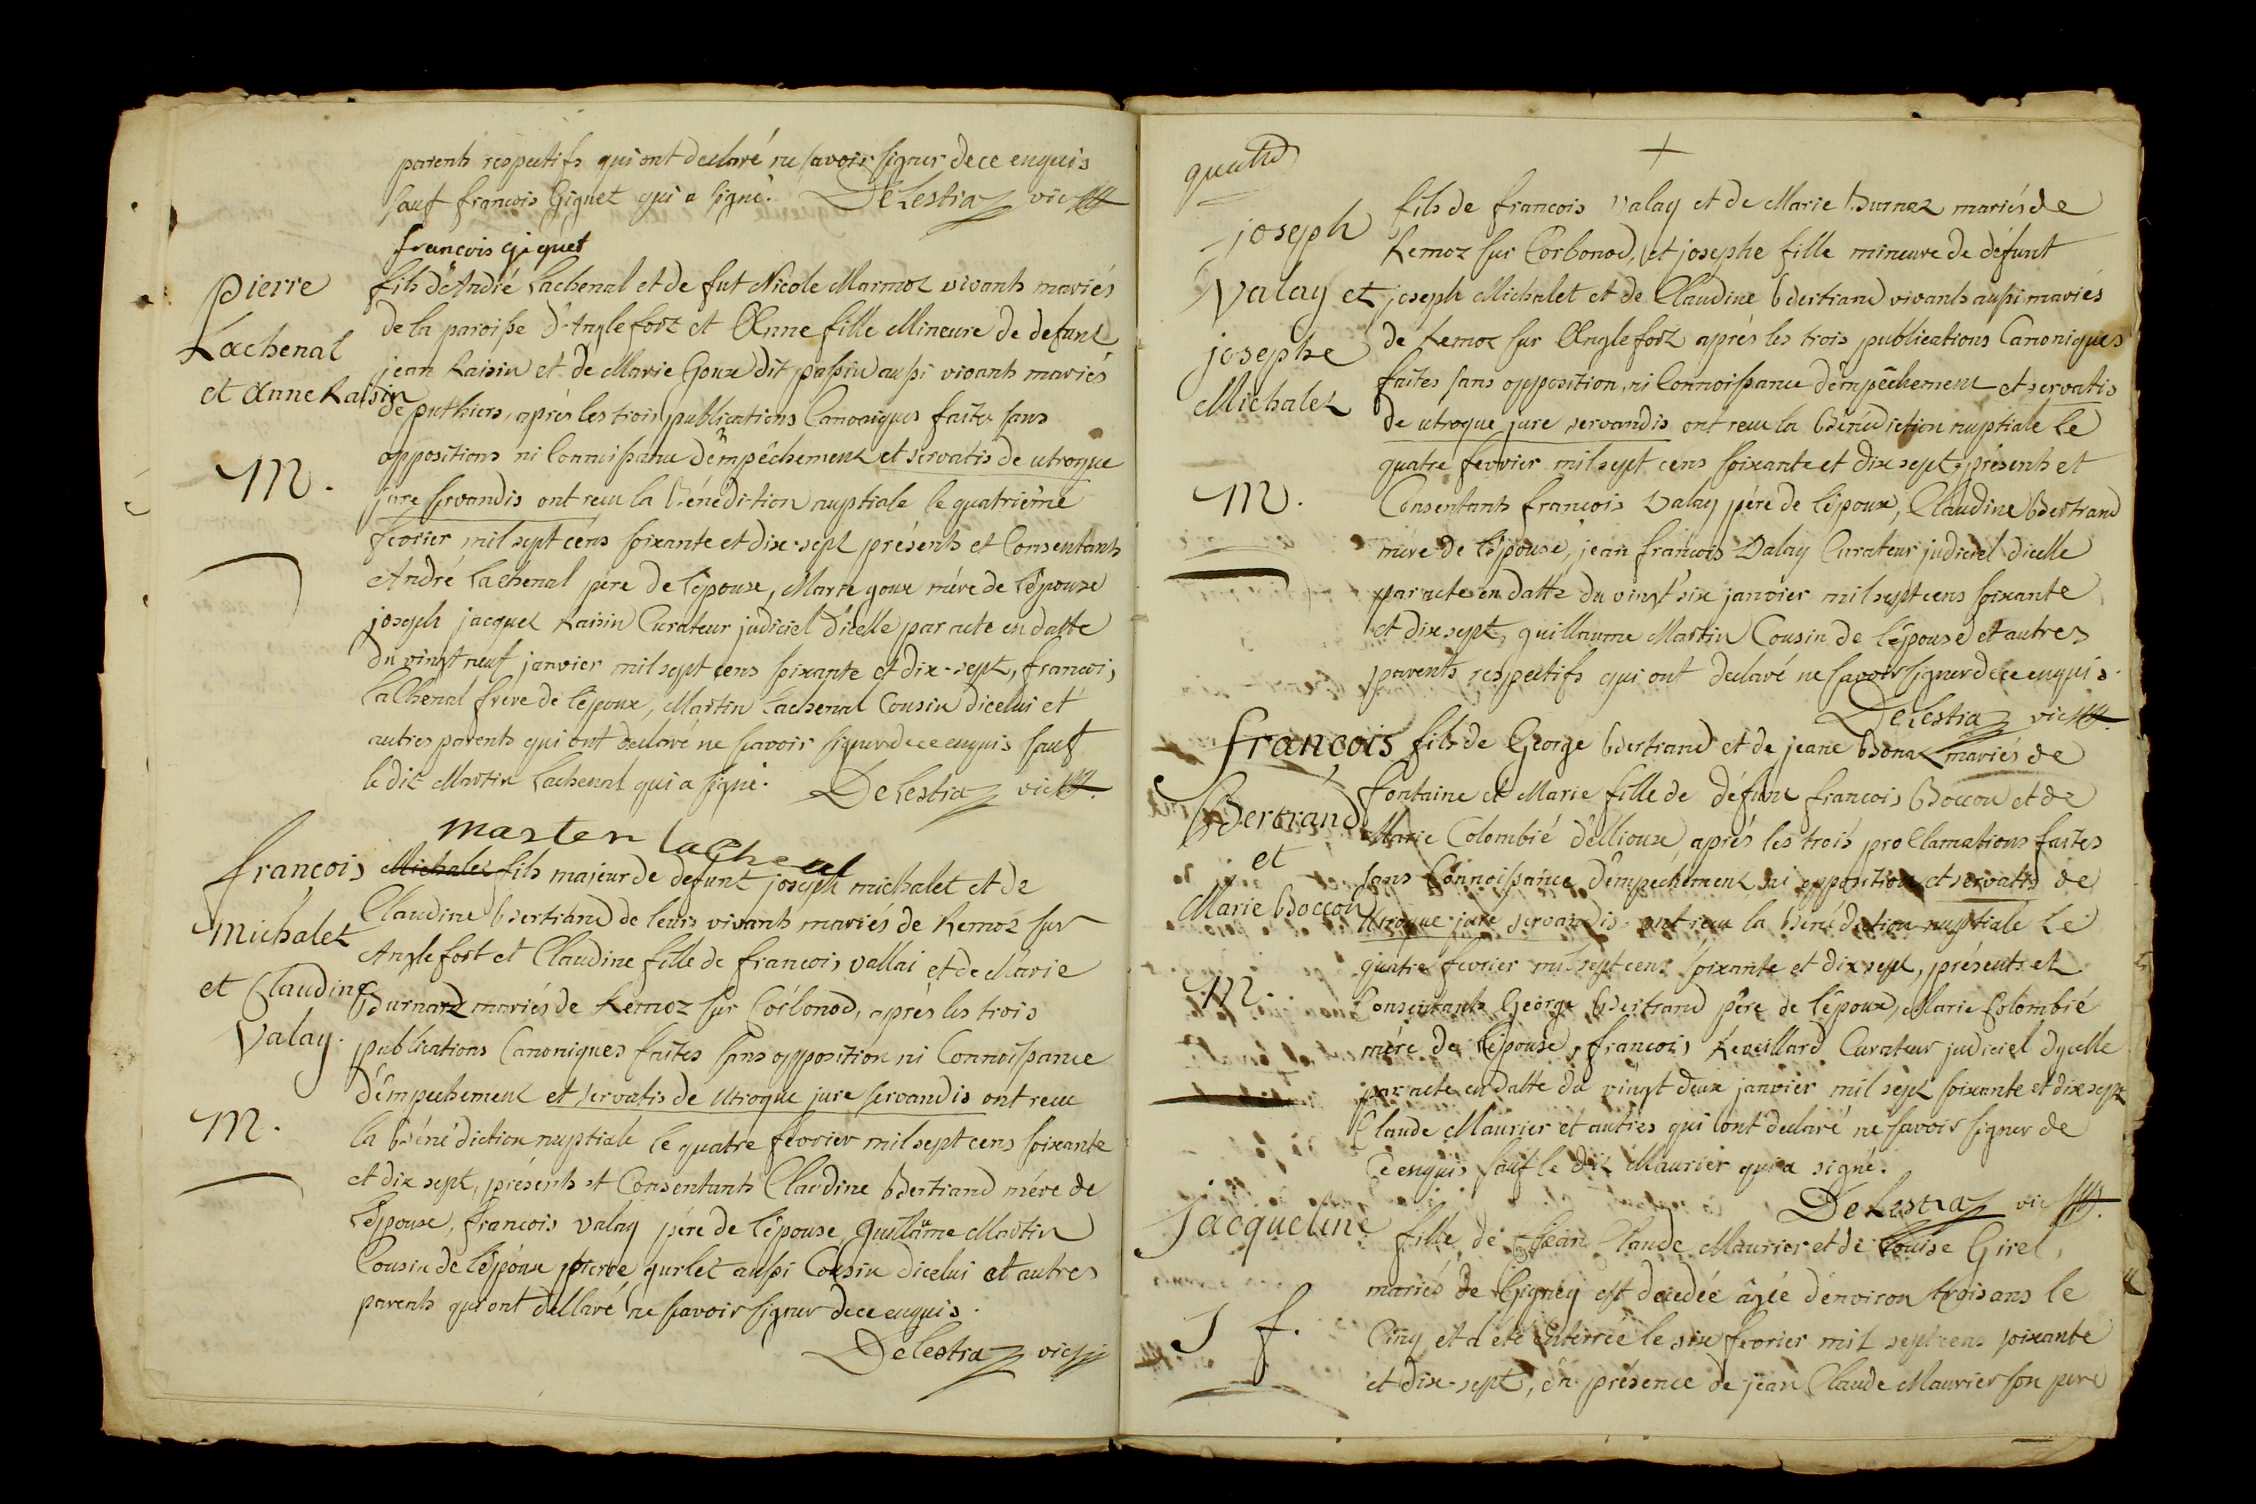 parents respectifs qui ont declaré ne savoir signer de ce enquis
sauf francois Giguet qui a signé. DeLestraz vic
francois giguet
pierre
Lachenal
et Anne Raisin
M.
fils d'André Lachenal et de fut Nicole Marmoz vivants mariés
de la paroisse d'Anglefort et Anne fille Mineure de defunt
jean Raisin et de Marie Goux dit passin aussi vivants mariés
de puthiers, après les trois publications Canoniques faites sans
oppositions ni Connoissance d'empêchement et servatis de utroque
jure servandis ont reçu la Bénédiction nuptiale le quatrième
fevrier mil sept cens soixante et dix-sept présents et Consentants
André Lachenal père de l'épouse, Marie goux mère de l'épouse
joseph jacques Raisin Curateur judiciel d'icelle par acte en datte
du vingt neuf janvier mil sept cens soixante et dix-sept, francois
lachenal frère de l'époux, Martin Lachenal Cousin d'icelui et
autres parents qui ont declaré ne scavoir signer de ce enquis sauf
le dit Martin Lachenal qui a signé. DeLestraz vic
marten lachenal
françois
Michalet
et Claudine
Valay.
M.
Michalet fils majeur de defunt joseph michalet et de
Claudine Bertrand de leurs vivants mariés de Remoz sur
Anglefort et Claudine fille de francois vallai et de Marie
Burnaz mariés de Remoz sur Corbonod, après les trois
publications Canoniques faites sans opposition ni Connoissance
d'empechement et servatis de utroque jure servandis ont reçu
la Bénédiction nuptiale le quatre fevrier mil sept cens soixante
et dix sept, présents et Consentants Claudine Bertrand mère de
l'épouse, francois valay père de l'épouse, Guillaume Martin
Cousin de l'époux pierre gurlet aussi Cousin d'icelui et autres
parents qui ont dellaré ne scavoir signer de ce enquis.
Delestraz vic
quatre
joseph
Valay et
josephe
Michalet
M.
fils de francois valay et de Marie Burnaz mariés de
Remoz sur Corbonod, et josephe fille mineure de défunt
joseph Michalet et de Claudine Bertrand vivants aussi mariés
de Remoz sur Anglefort après les trois publications Canoniques
faites sans opposition, ni Connoissance d'empêchement et servatis
de utroque jure servandis ont reçu la Bénédiction nuptiale le
quatre fevrier mil sept cens soixante et dix sept, présents et
Consentants francois Valay père de l'époux, Claudine Bertrand
mère de l'épouse, jean francois Dalay Curateur judiciel d'icelle
par acte en datte du vingt six janvier mil sept cens soixante
et dix sept, guillaume Martin Cousin de l'épouse et autres
parents respectifs qui ont declaré ne scavoir signer de ce enquis.
DeLestraz vic
françois
Bertrand
et
Marie Boccon
M.
fils de George Bertrand et de jeane Bonaz mariés de
fontaine et Marie fille de défunt francois Boccon et de
Marie Colombié d'ellioux, après les trois proClamations faites
sans Connoissance d'empechement ni opposition et servatis de
utroque jure servandis ont reçu la Bénédiction nuptiale le
quatre fevrier mil sept cens soixante et dix sept, présents et
Consentants George Bertrand père de l'époux, Marie Colombié
mère de l'épouse, francois Reveillard Curateur judiciel d'ycelle
par acte en datte du vingt deux janvier mil sept soixante et dix sept
Claude Maurier et autres qui ont declaré ne savoir signer de
ce enquis sauf le dit Maurier qui a signé.
DeLestraz vic
jacqueline
S f.
fille de jean Claude Maurier et de Louise Girel,
mariés de Gigney est decedée âgée d'environ trois ans le
Cinq et a été enterrée le six fevrier mil sept cens soixante
et dix-sept, en présence de jean Claude Maurier son pere